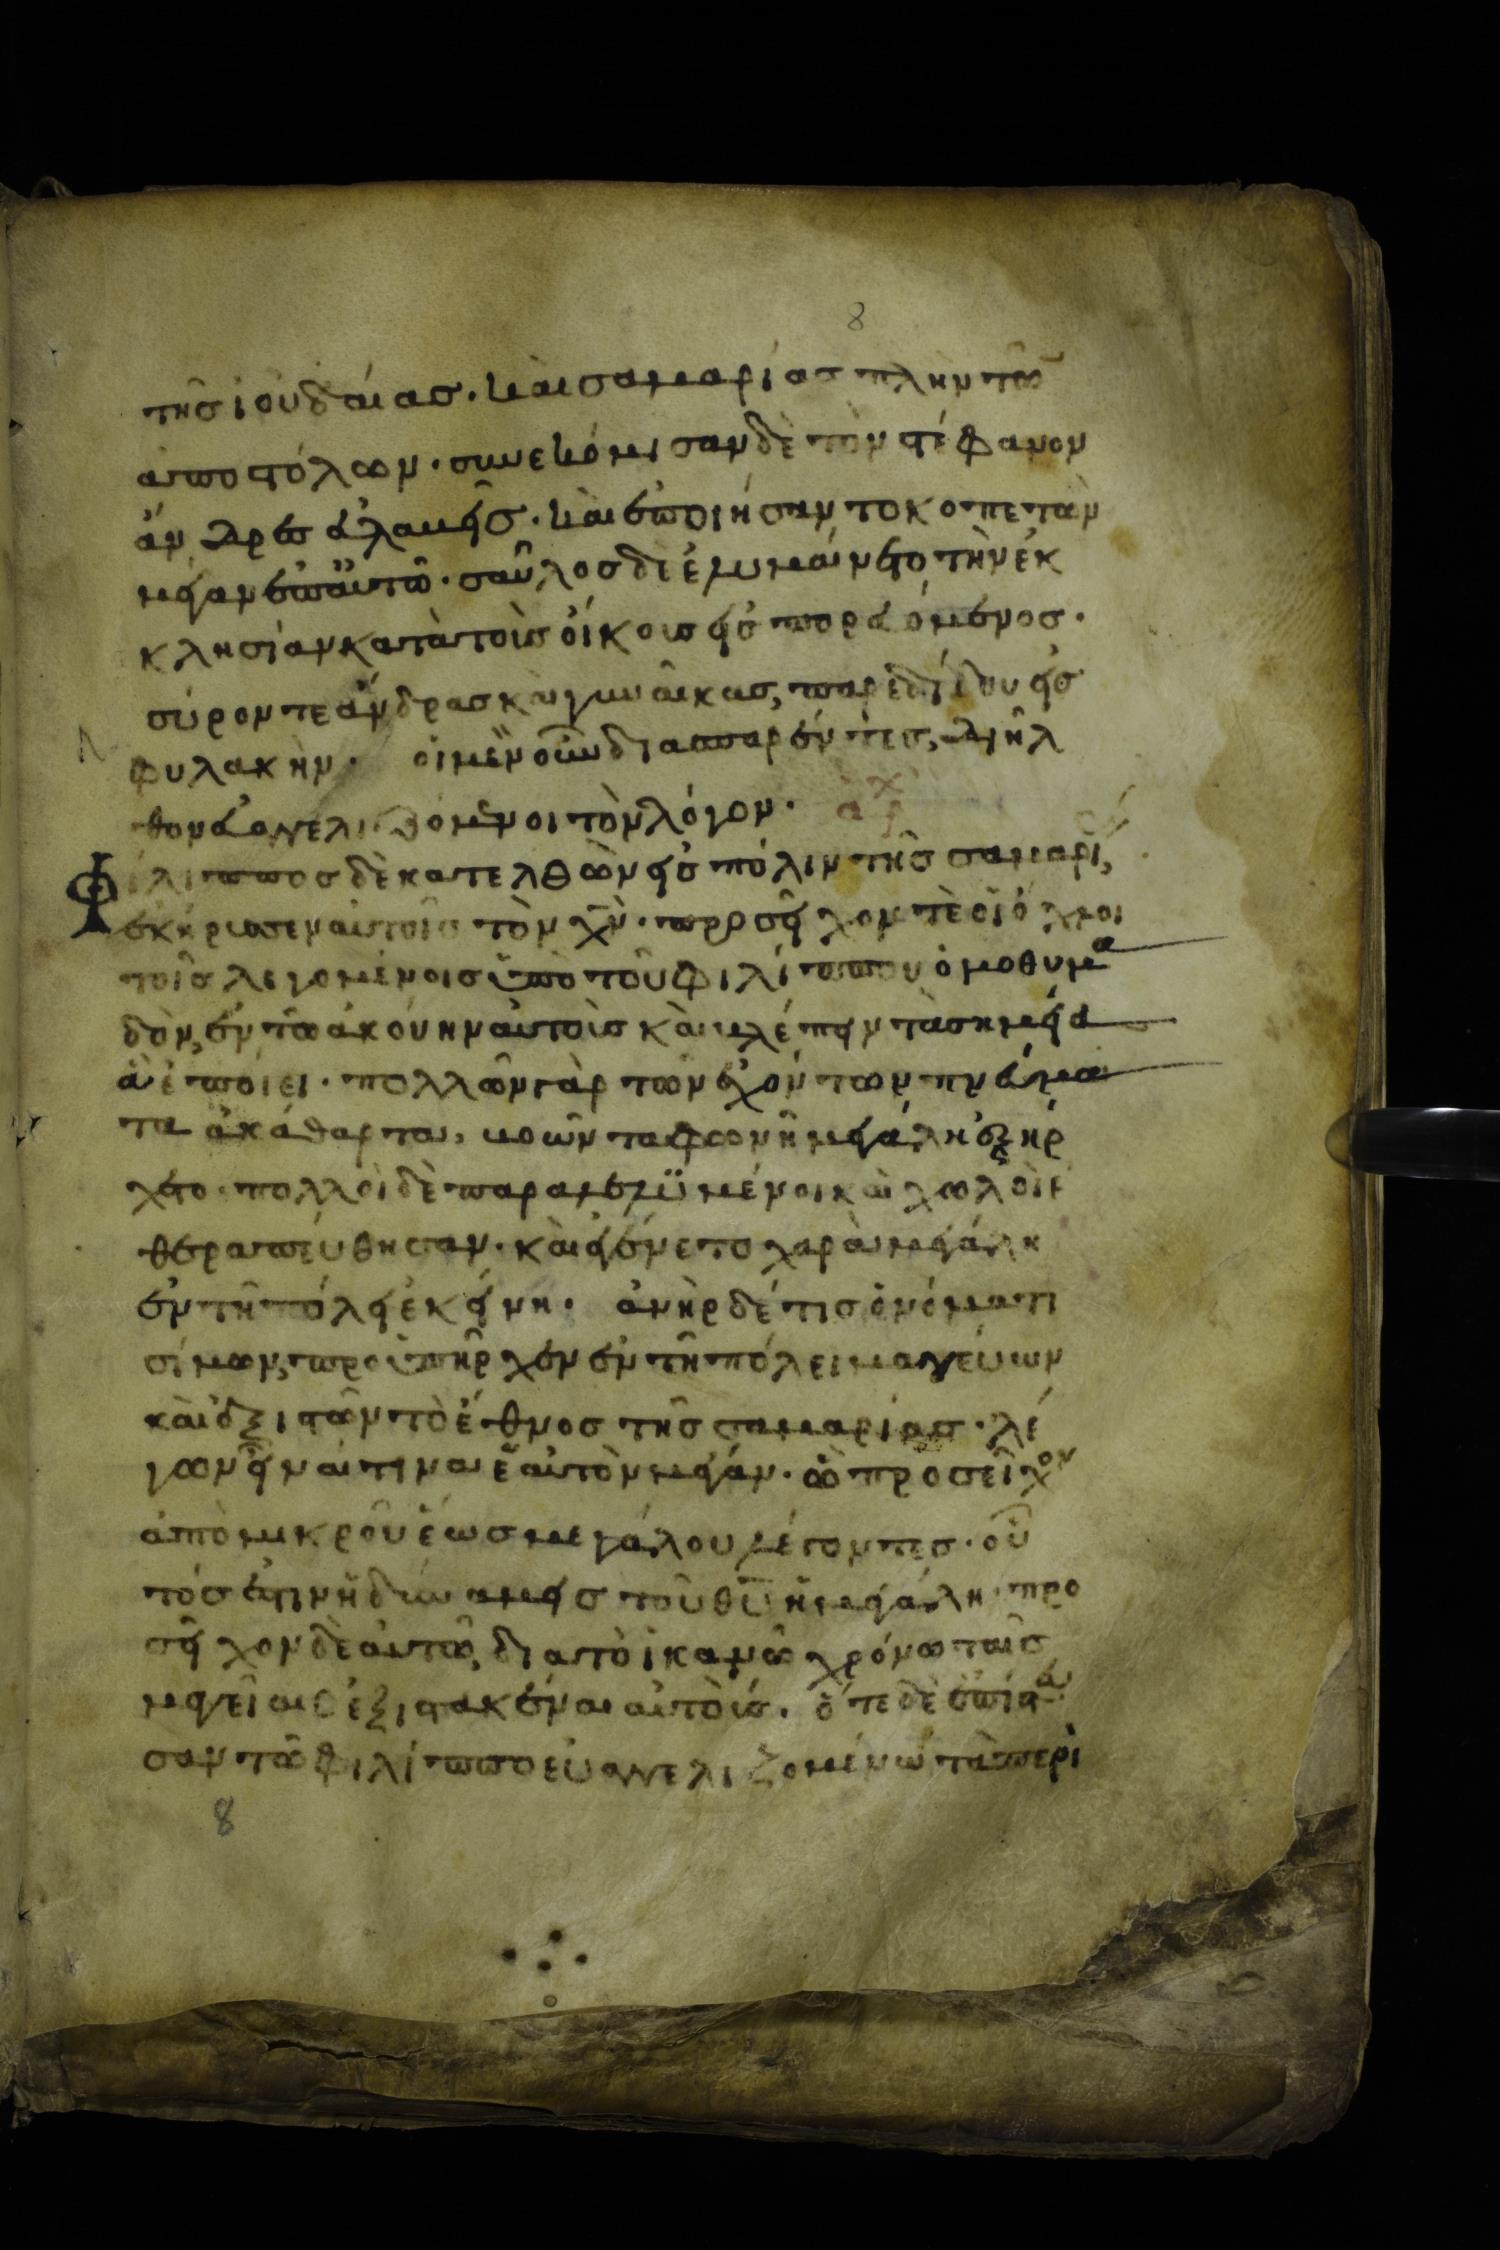 8
τῆς ἰουδαίας· καὶ σαμαρίας πλὴν τῶ
ἀποστόλων· συνεκόμισαν δὲ τὸν στέφανον
ἄνδρες εὐλαβεῖς· καὶ ἐποιήσαντο κοπετὸν
μέγαν ἐπ αὐτῶ· σαῦλος δὲ ἐλυμαίνετο τὴν ἐκ
κλησίαν κατὰ τοὺς οἴκους εἰσπορευόμενος·
σύρον τε ἄνδρας καὶ γυναῖκας, παρεδίδου εἰς
φυλακὴν· οἱ μὲν οὖν διασπαρέντες, διῆλ
θον εὐαγγελιζόμενοι τὸν λόγον·
Φίλιππος δὲ κατελθὼν εἰς πόλιν τῆς σαμαρί,
ἐκήρυσεν αὐτοῖς τὸν χν· προσεῖχον τὲ οἱ ὄχλοι
τοῖς λεγομένοις ὑπὸ τοῦ φιλίππου ὁμοθυμα
δὸν, ἐν τῶ ἀκούην αὐτοὺς καὶ βλέπειν τὰ σημεῖα
ἃ ἐποίει· πολλῶν γὰρ τῶν ἐχόντων πνεύμα
τα ἀκάθαρτα, βοῶντα φωνῆ μεγάλη ἐξήρ
χετο· πολλοὶ δὲ παραλελυμένοι καὶ χωλοὶ ἐ
θεραπεύθησαν· καὶ ἐγένετο χαρὰ μεγάλη
ἐν τῆ πόλει ἐκείνη· ἀνὴρ δέ τις ὀνόματι
σίμων, προϋπῆρχεν ἐν τῆ πόλει μαγεύων
καὶ ἐξιστῶν τὸ ἔθνος τῆς σαμαρίας· λέ
γων εἶναί τινα ἑαυτὸν μέγαν· ὧ προσεῖχον
ἀπὸ μικροῦ ἕως μεγάλου λέγοντες· οὗ
τός ἐστιν ἡ δύναμεις τοῦ θυ ἡ μεγάλη· προ
σεῖχον δὲ αὐτῶ, διὰ τὸ ἱκανῶ χρόνω ταῖς
μαγείαις ἐξεστακέναι αὐτοὺς· ὅτε δὲ ἐπίστευ
σαν τῶ φιλίππο εὐαγγελιζομένω τὰ περὶ
8